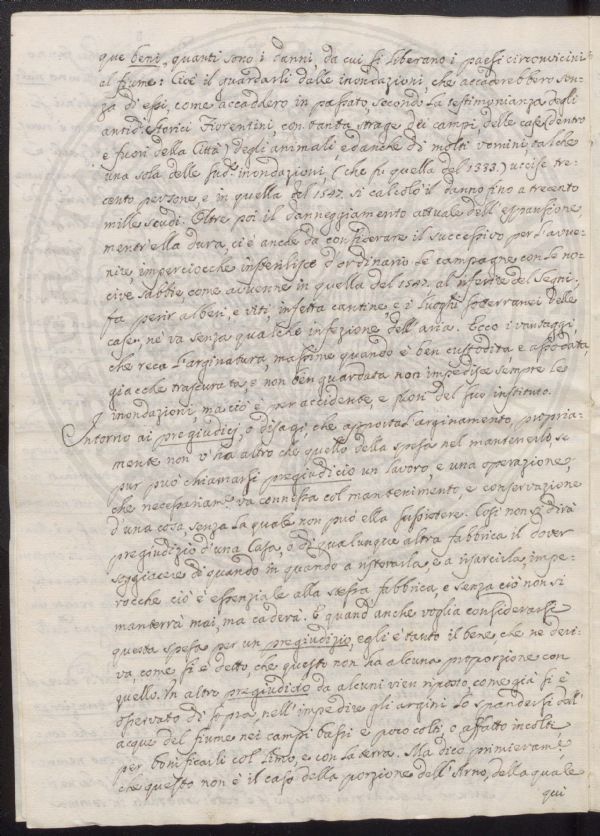 que beni, quanti sono i danni, da cui si liberano i paesi circonvicini
al fiume: Cioè il guardarli dalle inondazioni, che accaderebbero sen-
za di essi, come accaddero in passato, secondo la testimonianza degli
antichi Storici Fiorentini, con tanta strage dei campi, delle case (dentro
e fuori della Città) degli animali, ed anche di molti uomini, talche
una sola delle sud.e inondazioni, (che fu quella del 1333.) uccise tre-
cento persone, e in quella del 1547. si calcolò il danno fino a trecento
mille scudi. Oltre poi il danneggiamento attuale dell'espansione,
mentr'ella dura, ci è anche da considerare il successivo per l'avve-
nire, impercioche insterilisce d'ordinario le campagne con le no-
cive sabbie, come avvenne in quella del 1547. al riferire del Segni,
fa perir alberi, e viti, infetta cantine, e i luoghi sotterranei delle
case, nè va senza qualche infezione dell'aria. Ecco i vantaggi,
che reca l'arginatura, massime quando è ben custodita, e assodata,
giacche trascurata, e non ben guardata non impedisce sempre le
inondazioni, ma ciò è per accidente, e fuori del suo instituto.
Intorno ai pregiudicj, o disagi, che apporta l'arginamento, propria-
mente non v'ha altro che quello della spesa nel mantenerlo, se
pur può chiamarsi pregiudicio un lavoro, e una operazione,
che necessariam.e va connessa col mantenimento, e conservazione
d'una cosa, senza la quale non può ella sussistere. Così non si dirà
pregiudizio d'una Casa, o di qualunque altra fabbrica il dover
soggiacere di quando in quando a ristorarla, e a risarcirla, impe-
rocche ciò è essenziale alla stessa fabbrica, e senza ciò non si
manterrà mai, ma caderà. E quand'anche voglia considerarsi
questa spesa per un pregiudizio, egli è tanto il bene, che ne deri-
va, come si è detto, che questo non ha alcuna proporzione con
quello. Un altro pregiudicio da alcuni vien riposto, come già si è
osservato di sopra, nell'impedire gli argini lo spandersi dell'
acque del fiume nei campi bassi, e poco colti, o affatto incolti
per bonificarli col limo, e con la terra. Ma dico primieram.e
che questo non è il caso della porzione dell'Arno, della quale
qui